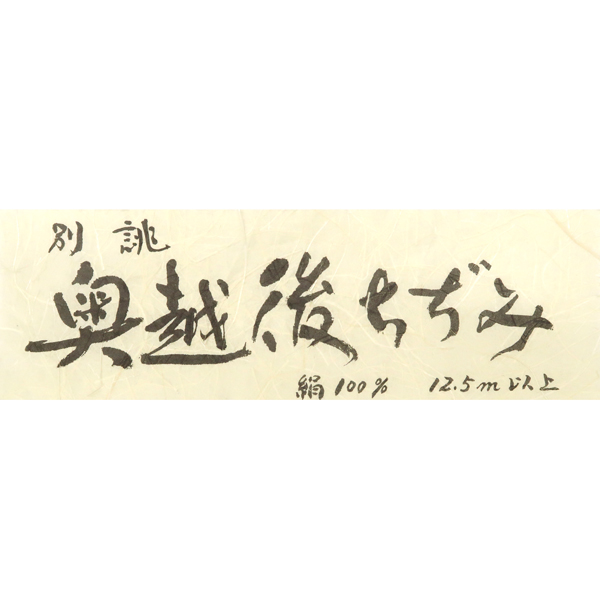 別誂
奥越後ちぢみ
絹100% 12.5m以上